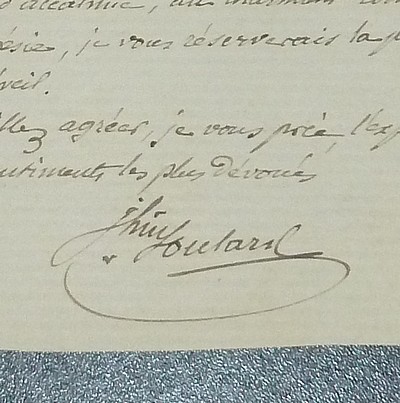 d'accalmie, au
ésie, je vous réserverais la p
éveil.
illez agréer, je vous prie l'exp
entiments les plus dévoués
Soulard